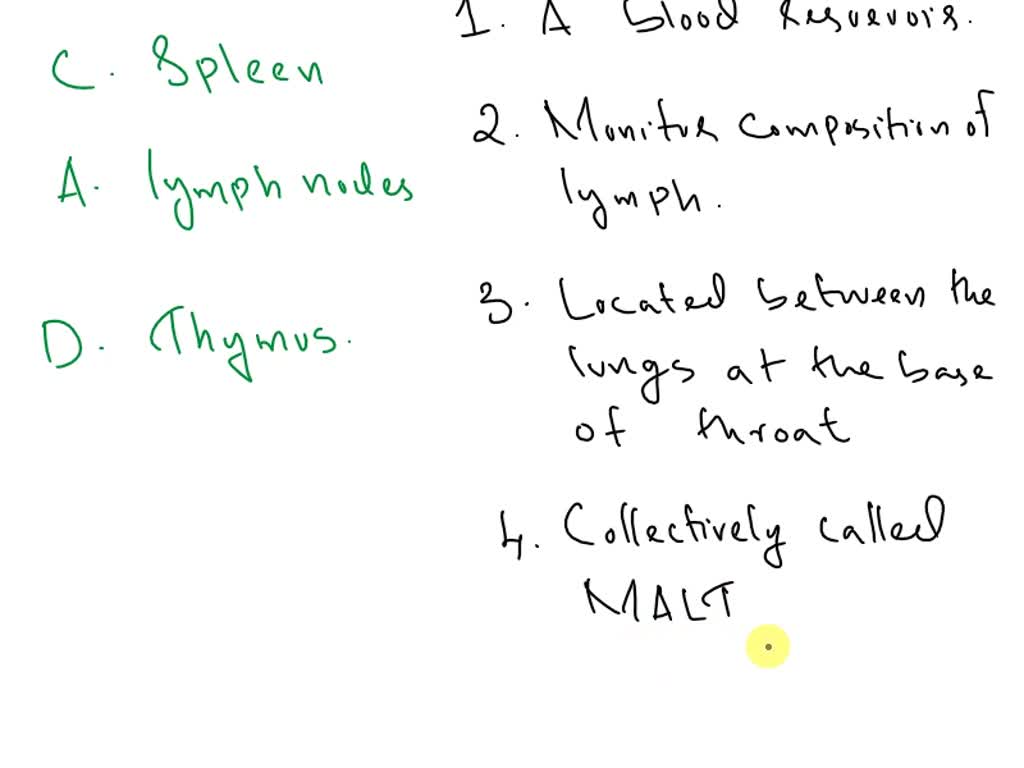 1. A blood Resuevois.
C. Spleen
2. Monitor composition of
lymph.
A. lymph nodes
3. Located between the
lungs at the base
of throat
D. Thymus.
4. Collectively called
MALT